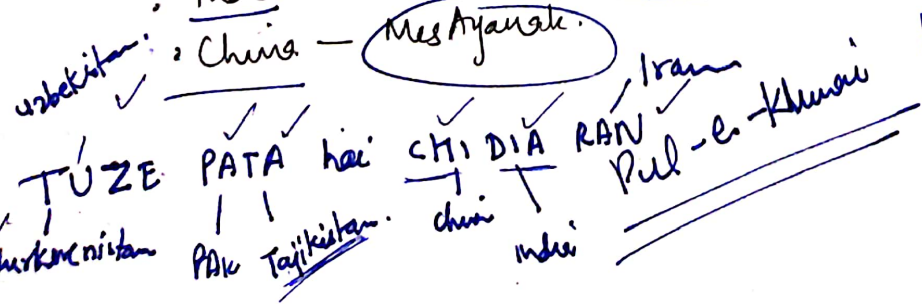 uzbekistan.
• China — Mes Aynak.
Iran
TUZE PATA hai CHI DIA RAN
Pul-e-Khumri
Turkmenistan PAK Tajikistan. China India